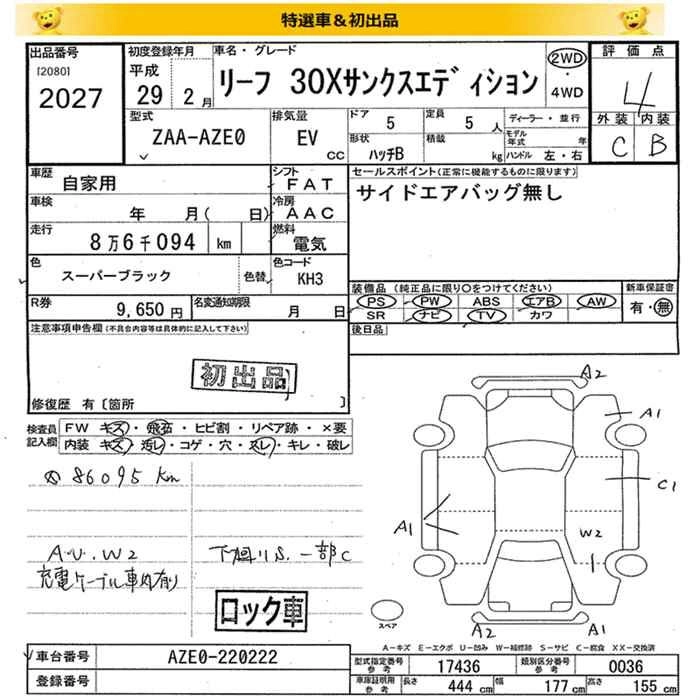 特選車＆初出品
出品番号
[2080]
2027
初度登録年月
平成
29年 2月
車名・グレード
リーフ 30Xサンクスエディション
2WD
・
4WD
評価点
4
外装 内装
C B
型式
ZAA-AZE0
排気量
EV
CC
ドア 5
定員 5 人
形状
ハッチB
積載
kg
ディーラー・並行
モデル年式 年
ハンドル 左・右
車歴
自家用
シフト
FAT
車検
年 月( 日)
冷房
AAC
走行
8万6千094 km
燃料
電気
色
スーパーブラック
色替
色コード
KH3
R券
9,650円
名変通知期限
月 日
セールスポイント(正常に機能するものに限ります)
サイドエアバッグ無し
装備品 (純正品に限り○をつけてください)
新車保証書
PS PW ABS エアB AW
有・無
SR ナビ TV カワ
後日品
注意事項申告欄(不具合内容等は具体的に記入して下さい)
初出品
修復歴 有〔箇所 〕
検査員
記入欄
FW キズ・飛石・ヒビ割・リペア跡・×要
内装 キズ・汚レ・コゲ・穴・スレ・キレ・破レ
86095 km
A・U・W2
下廻りS・一部C
充電ケーブル車内有り
ロック車
A2
A1
C1
A1
W2
A2
A1
スペア
A－キズ E－エクボ U－凹み W－補修跡 S－サビ C－腐食 XX－交換済
車台番号
AZE0-220222
登録番号
型式指定番号
参考
17436
類別区分番号
参考
0036
車庫証明用
参考
長さ 444 cm
幅 177 cm
高さ 155 cm